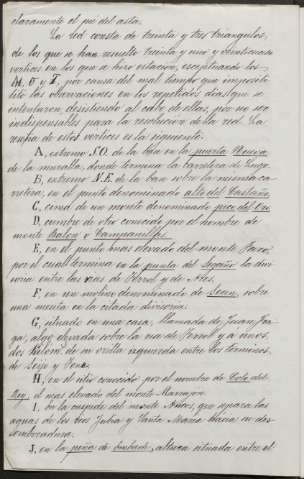 claramente el pie del asta.
La red consta de treinta y tres triangulos,
de los que a han resulto treinta y uno y
vertices en los que se hizo estacion, exceptuando los
M, O y T, por causa del mal tiempo que imposibi-
lito las observaciones en los repetidos dias que se
intentaron, desistiendo al cabo de ellas, por no ser
indispensables para la resolucion de la red. La
de estos vertices es la siguiente:
A, extremo S.O. de la base en la puerta Nueva
de la muralla, donde termina la carretera de Lugo.
B, extremo N.E. de la base sobre la misma ca-
rretera, en el punto denominado alto del Castaño.
C, cima de un monte denominado pico del
D, cumbre de otro conocido por el nombre de
monte y Campanilla.
E, en el punto mas elevado del monte
por el cual termina en la punta del Segaño la divi-
soria entre las rias de Ferrol y de Ares.
F, en un molino denominado de sobre
una meseta en la citada divisoria.
G, situado en una casa, llamada de Juan
algo elevada sobre la ria de Ferrol y a unos
dos de su orilla izquierda entre los terminos
de y
H, en el sitio conocido por el nombre de del
Rey, el mas elevado del monte
I, en la cuspide del monte que separa las
aguas de los rios Jubia y Santa Maria hacia su des-
embocadura.
J, en la peña de altura situada entre el